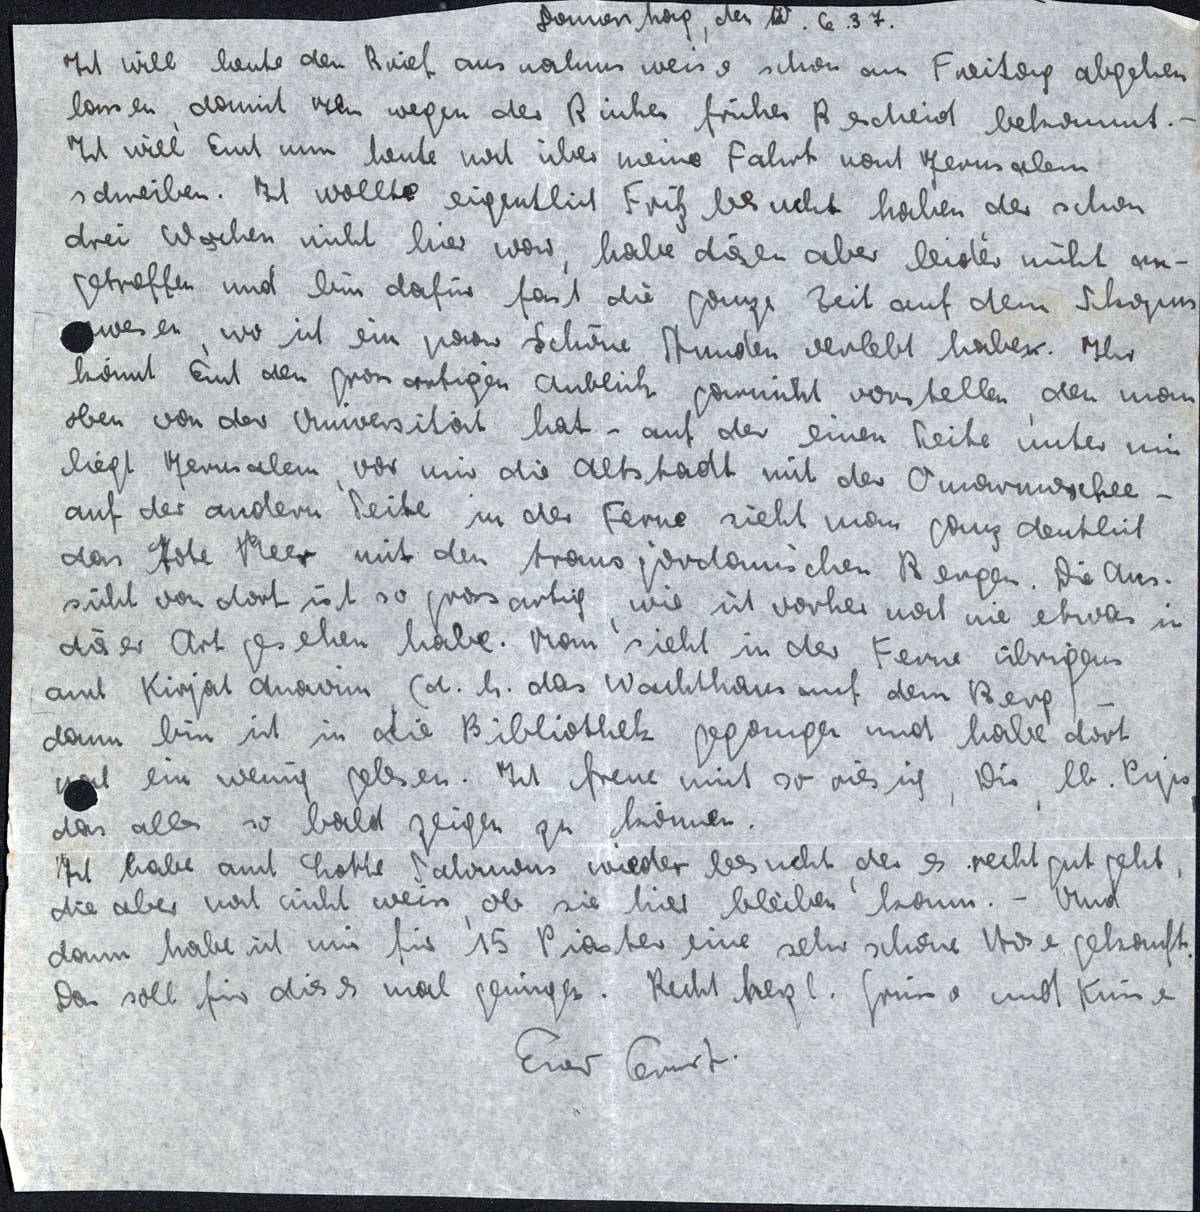 Donnerstag, den 10. 6. 37.
Ich will heute den Brief ausnahmsweise schon am Freitag abgehen
lassen, damit wegen der Bücher früher Bescheid bekommt. –
Ich will Euch nun heute noch über meine Fahrt nach Jerusalem
schreiben. Ich wollte eigentlich Fritz besucht haben der schon
drei Wochen nicht hier war, habe diesen aber leider nicht an-
getroffen und bin dafür fast die ganze Zeit auf dem Skopus
gewesen, wo ich ein paar schöne Stunden verlebt habe. Ihr
könnt Euch den grossartigen Anblick garnicht vorstellen, den man
oben von der Universität hat – auf der einen Seite unter mir
liegt Jerusalem, vor mir die Altstadt mit der Omarmoschee –
auf der andern Seite in der Ferne sieht man ganz deutlich
das Tote Meer mit den transjordanischen Bergen. Die Aus-
sicht von dort ist so grossartig, wie ich vorher noch nie etwas in
dieser Art gesehen habe. Man sieht in der Ferne übrigens
auch Kirjat Anavim (d. h. das Wachthaus auf dem Berg) –
dann bin ich in die Bibliothek gegangen und habe dort
noch ein wenig gelesen. Ich freue mich so riesig, Dir, lb.
das alles so bald zeigen zu können.
Ich habe auch Lotte Salomons wieder besucht, der es recht gut geht,
die aber noch nicht weiss, ob sie hier bleiben kann. – Und
dann habe ich mir für 15 Piaster eine sehr schöne Hose gekauft.
Das soll für dieses mal genügen. Recht herzl. Grüsse und Küsse
Euer Ernst.